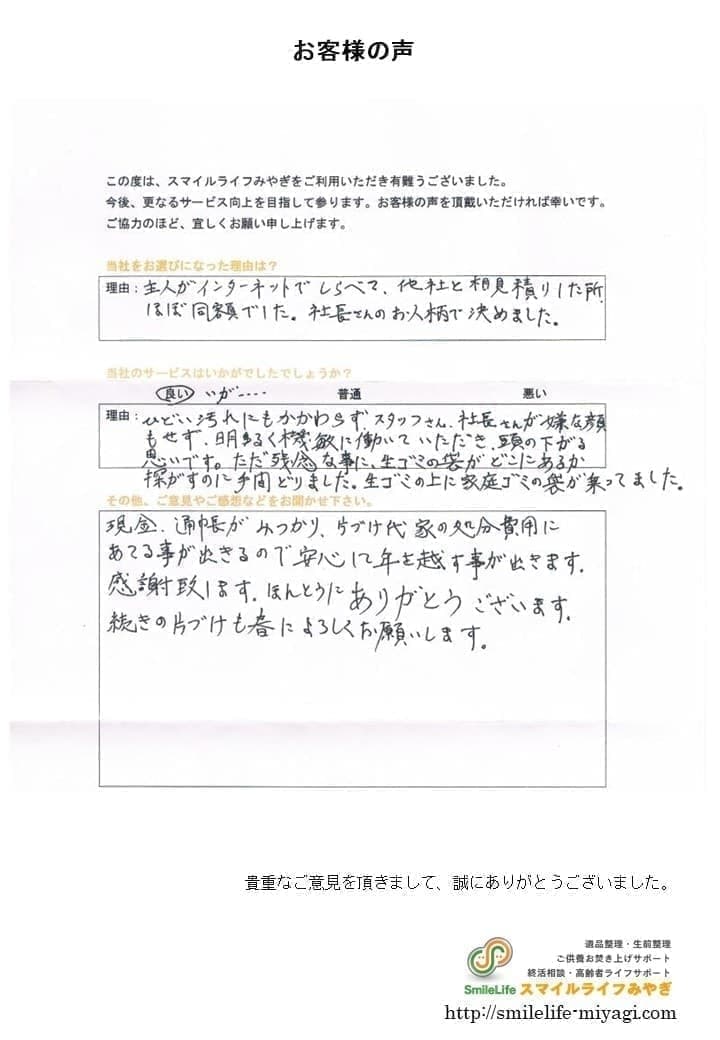 お客様の声
この度は、スマイルライフみやぎをご利用いただき有難うございました。
今後、更なるサービス向上を目指して参ります。お客様の声を頂戴いただければ幸いです。
ご協力のほど、宜しくお願い申し上げます。
当社をお選びになった理由は？
理由：主人がインターネットでしらべて、他社と相見積りした所、
ほぼ同額でした。社長さんのお人柄で決めました。
当社のサービスはいかがでしたでしょうか？
良い いが---- 普通 悪い
理由：ひどい汚れにもかかわらず、スタッフさん、社長さんが嫌な顔
もせず、明るく機敏に働いていただき、頭の下がる
思いです。ただ残念な事に、生ゴミの袋がどこにあるか
探がすのに手間どりました。生ゴミの上に家庭ゴミの袋が乗ってました。
その他、ご意見やご感想などをお聞かせ下さい。
現金、通帳がみつかり、片づけ代家の処分費用に
あてる事が出きるので安心して年を越す事が出きます。
感謝致します。ほんとうにありがとうございます。
続きの片づけも春によろしくお願いします。
貴重なご意見を頂きまして、誠にありがとうございました。
遺品整理・生前整理
ご供養お焚き上げサポート
終活相談・高齢者ライフサポート
SmileLife スマイルライフみやぎ
http://smilelife-miyagi.com